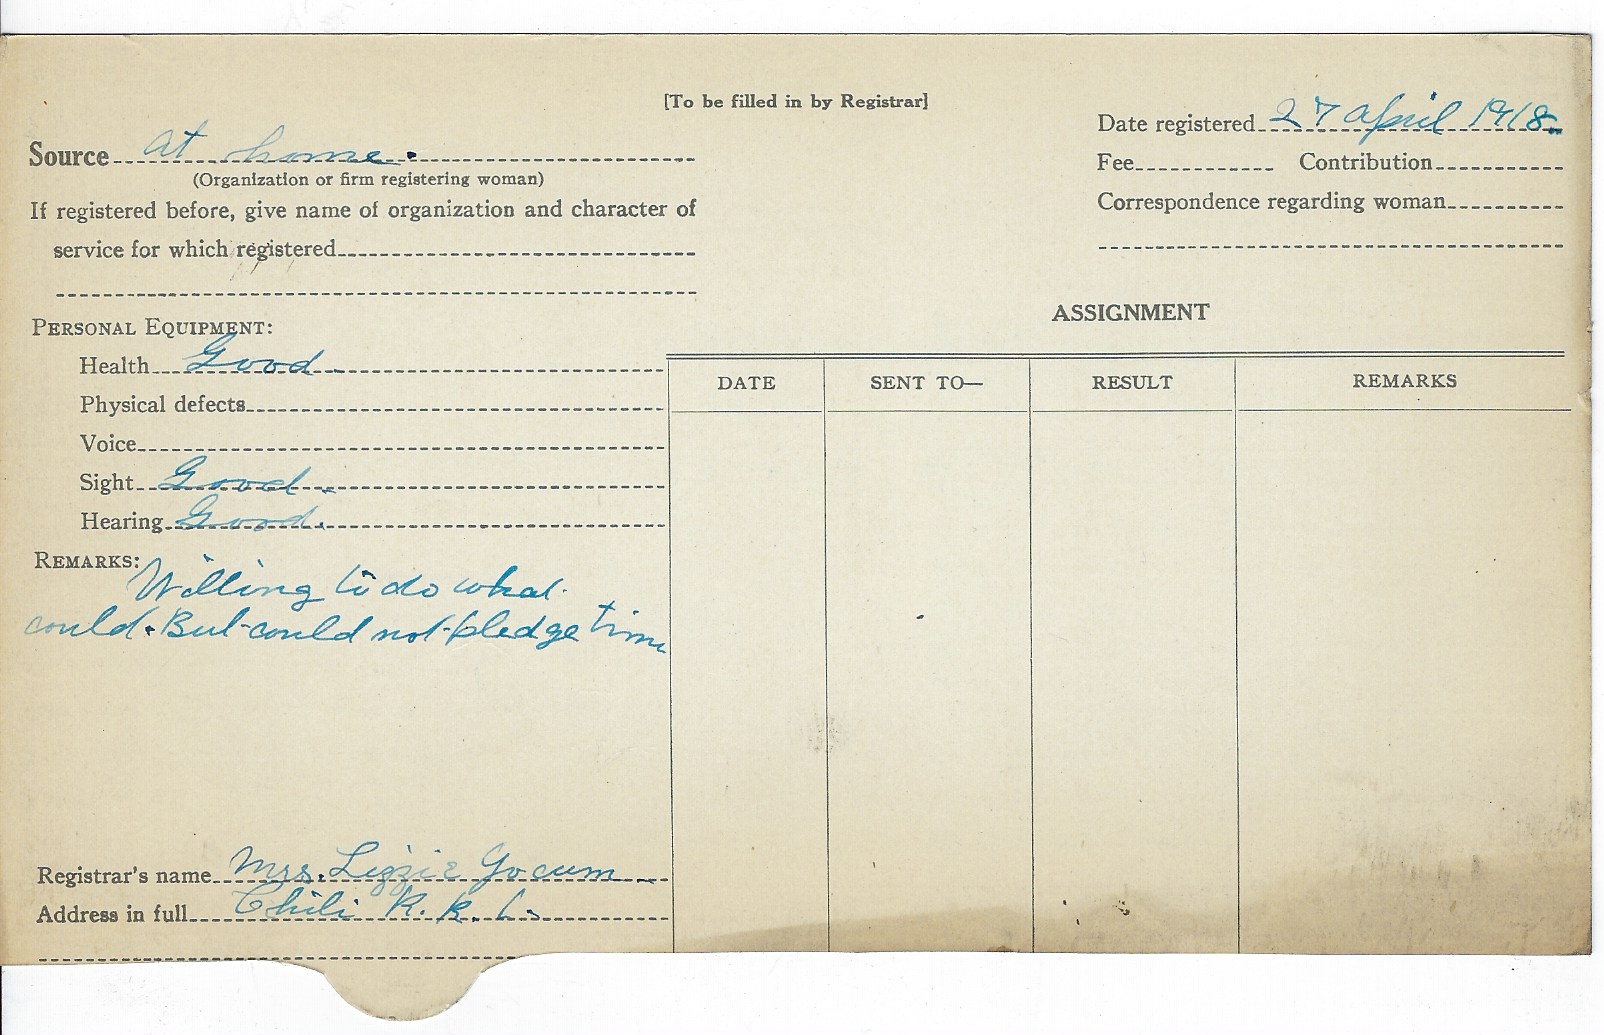 [To be filled in by Registrar]
Source at home.
(Organization or firm registering woman)
If registered before, give name of organization and character of
service for which registered
Date registered 27 April 1918
Fee Contribution
Correspondence regarding woman
PERSONAL EQUIPMENT:
Health Good
Physical defects
Voice
Sight Good
Hearing Good.
REMARKS:
Willing to do what
could. But could not pledge time
Registrar's name Mrs. Lizzie Yocum
Address in full Chili R. R. 1.
ASSIGNMENT
DATE SENT TO— RESULT REMARKS